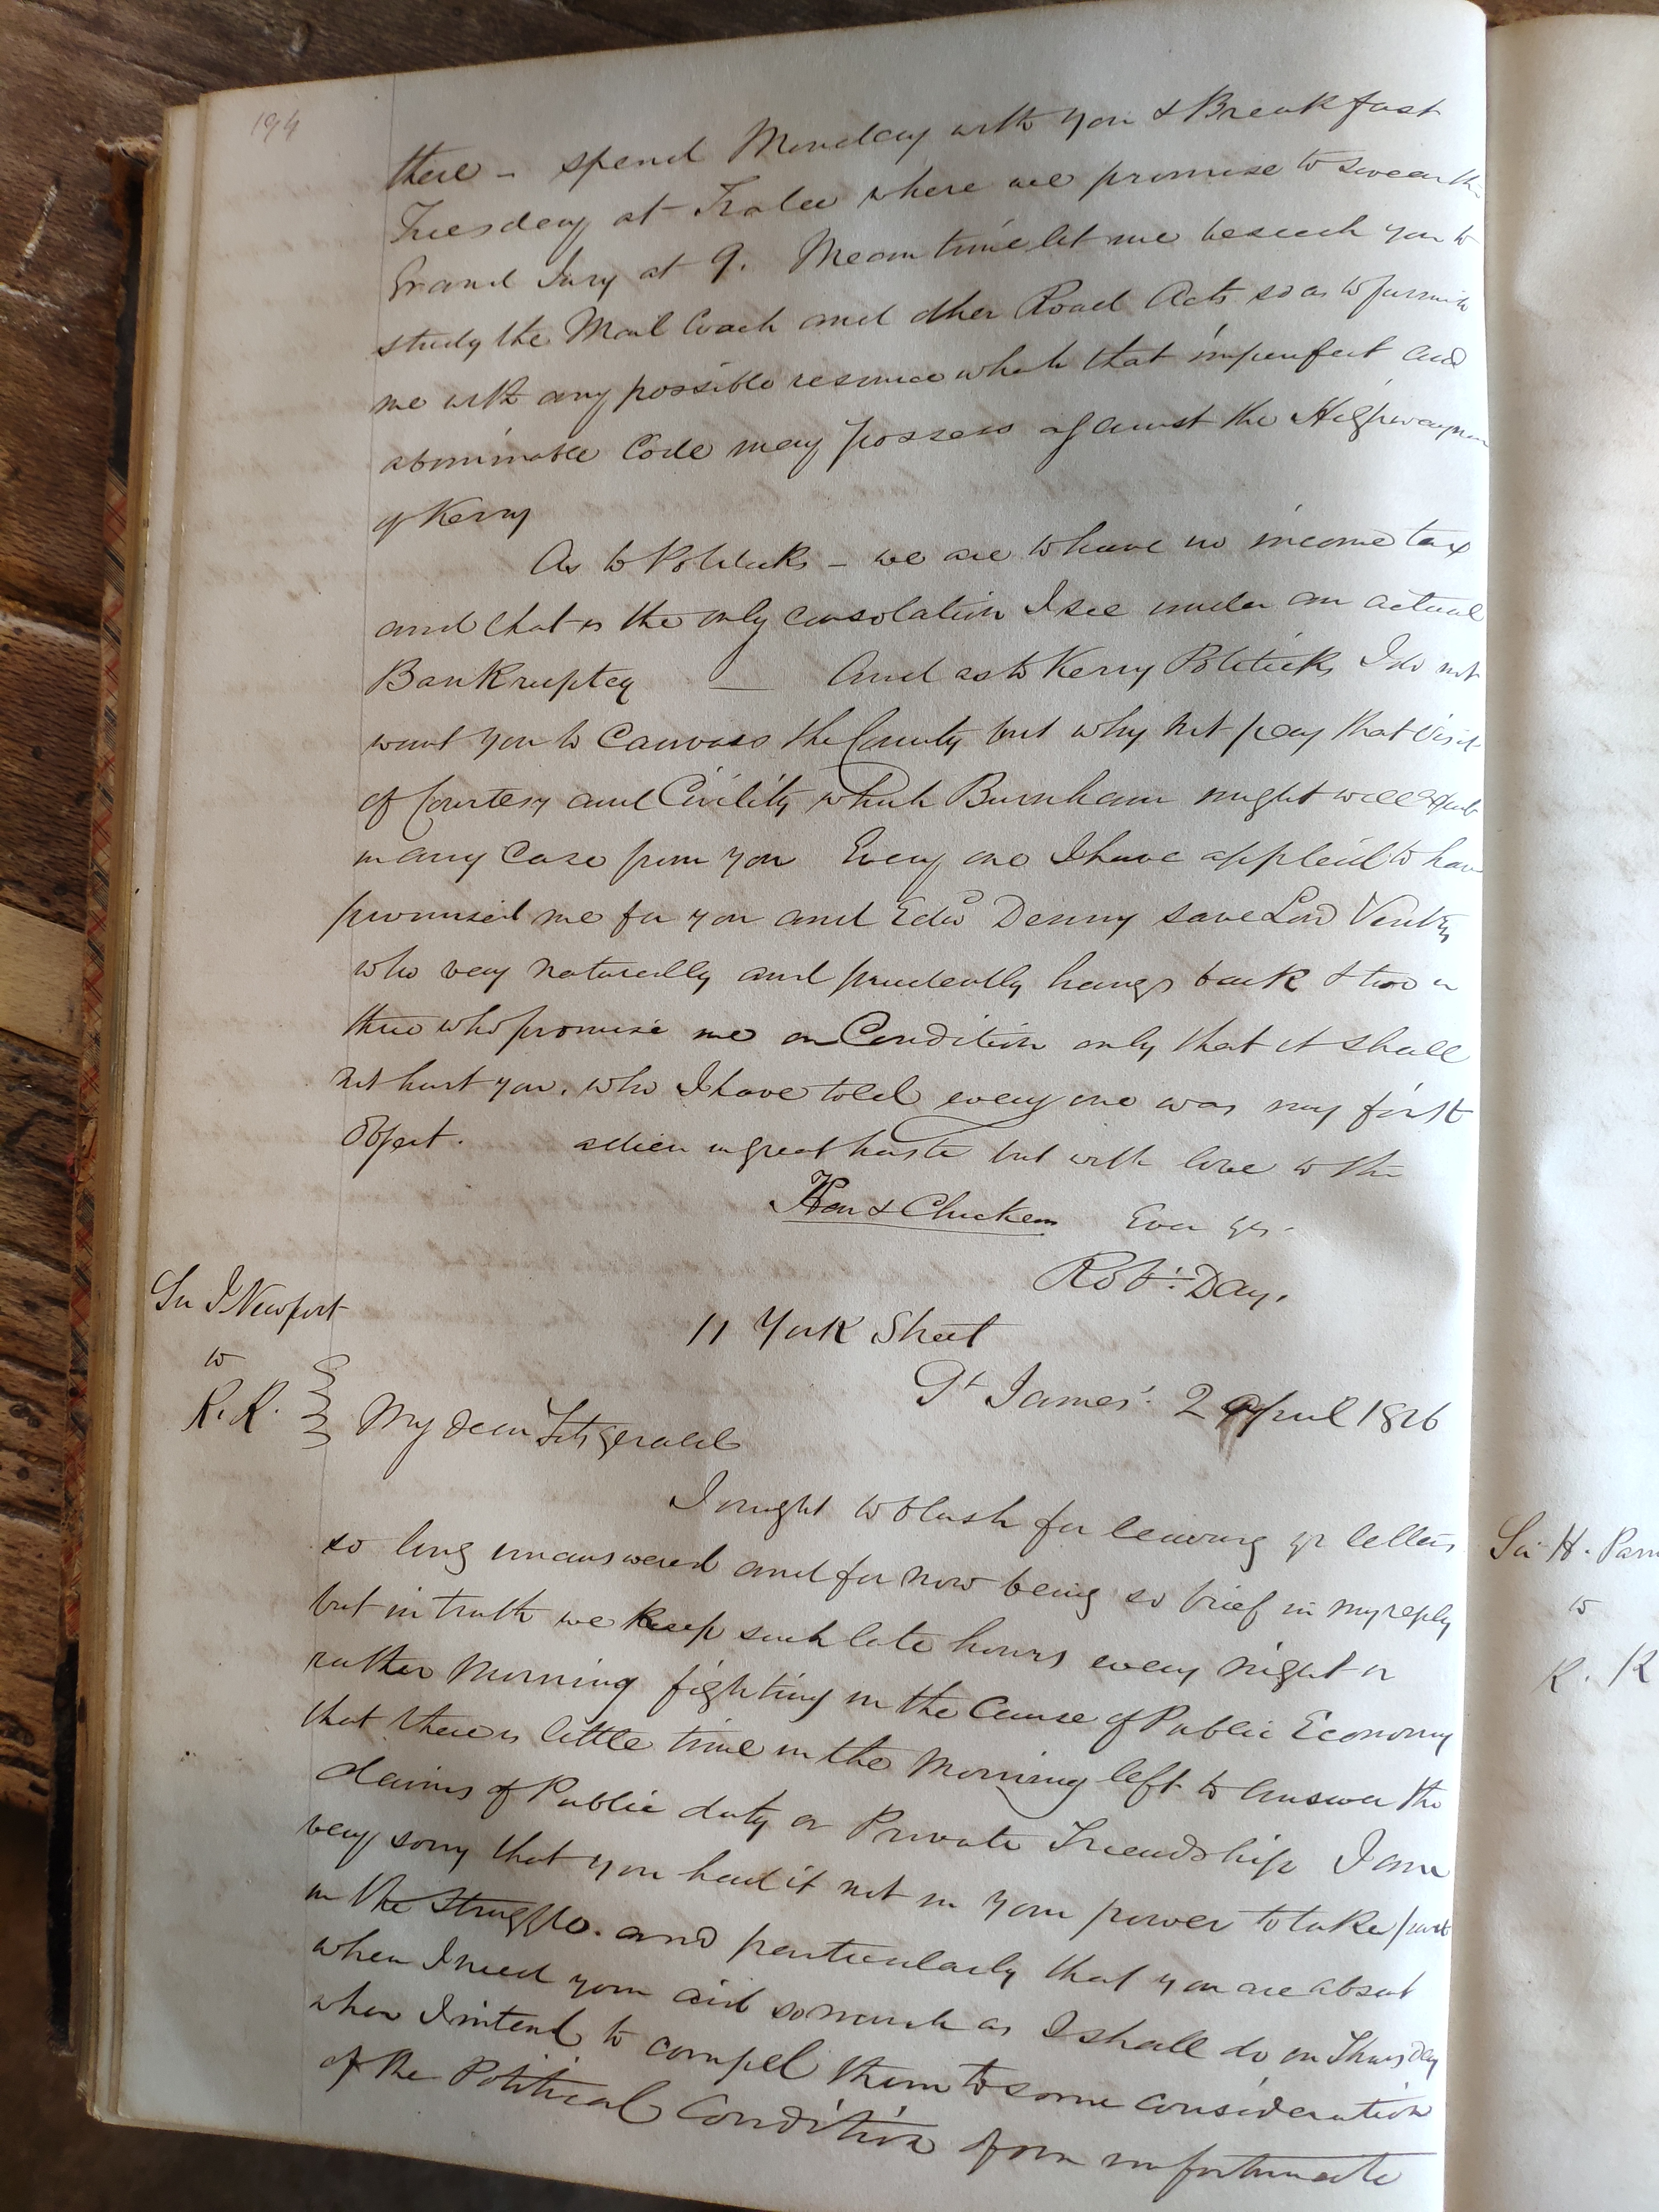 194
there - spend Monday with you & Breakfast
Tuesday at Tralee where we promise to swear the
Grand Jury at 9. Mean time let me beseech you to
study the Mail Coach and other Road Acts so as to furnish
me with any possible resource which that imperfect and
abominable Code may possess against the Highwaymen
of Kerry
As to Politicks - we are to have no income tax
and that is the only consolation I see under an actual
Bankruptcy — And as to Kerry Politicks I do not
want you to Canvass the County but why not pay that visit
of Courtesy and Civility which Burnham might well expect
in any Case from you Every one I have applied to have
promised me for you and Edwd Denny save Lord Ventry
who very naturally and prudently hangs back & two or
three who promise me on Condition only that it shall
not hurt you, who I have told every one was my first
Object. adieu in great haste but with love to the
Hen & Chickens Ever yrs.
Robt: Day.
Sir J Newport
to
R. K.
11 York Street
St James' 2 April 1816
My dear Fitzgerald
I ought to blush for leaving yr letters
so long unanswered and for now being so brief in my reply
but in truth we keep such late hours every night or
rather Morning fighting in the Cause of Public Economy
that there is little time in the Morning left to answer the
claims of Public duty or Private Friendship I am
very sorry that you had it not in your power to take part
in the struggle. and particularly that you are absent
when I need your aid so much as I shall do on Thursday
when I intend to compel them to some consideration
of the Political Condition of our unfortunate
Sir H. Parn
to
R. K